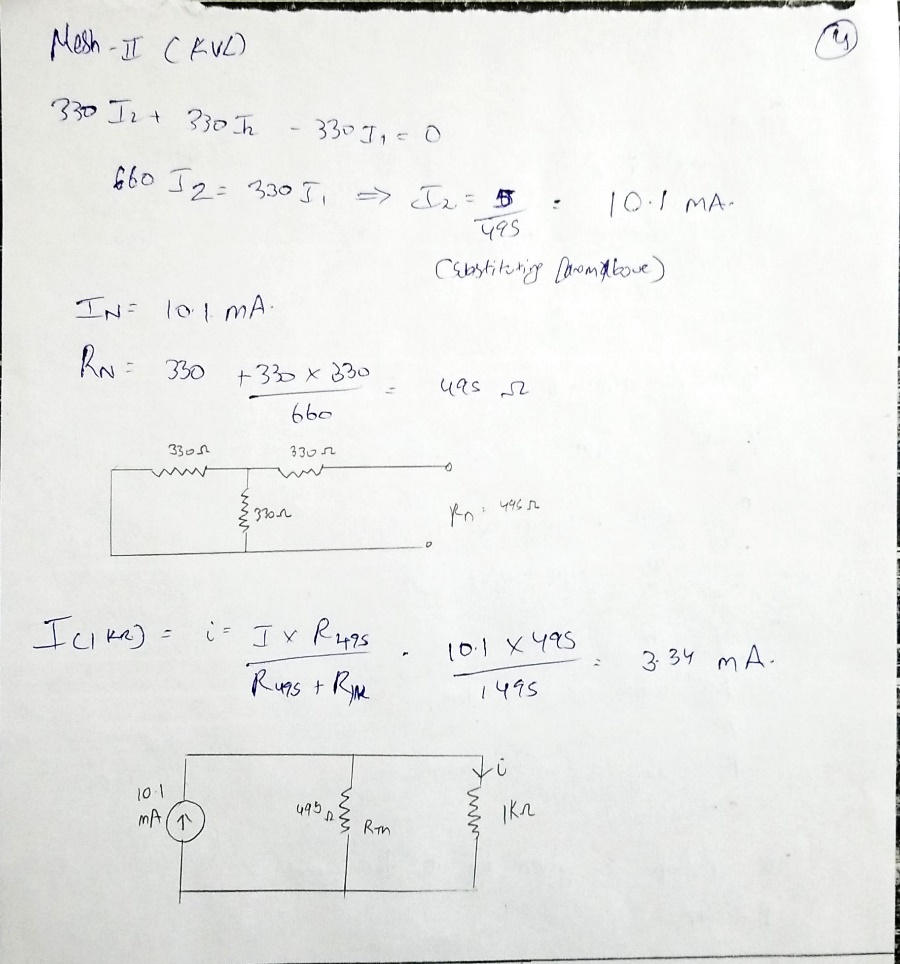 Mesh-II (KVL)
4
330 I2 + 330 I2 - 330 I1 = 0
660 I2 = 330 I1 ⇒ I2 = 5/495 = 10.1 mA.
(Substituting from above)
IN = 10.1 mA.
RN = 330 + 330 x 330 / 660 = 495 Ω
330Ω 330Ω
330Ω
Rn = 495Ω
I(1KΩ) = i = I x R495 / R495 + R1K = 10.1 x 495 / 1495 = 3.34 mA.
i
10.1 mA
495Ω
RTh
1KΩ